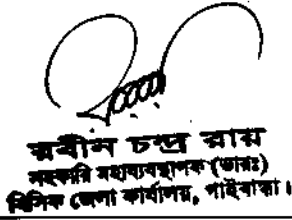 রবীন চন্দ্র রায়
সহকারি মহাব্যবস্থাপক (ভারঃ)
বিসিক জেলা কার্যালয়, গাইবান্ধা।